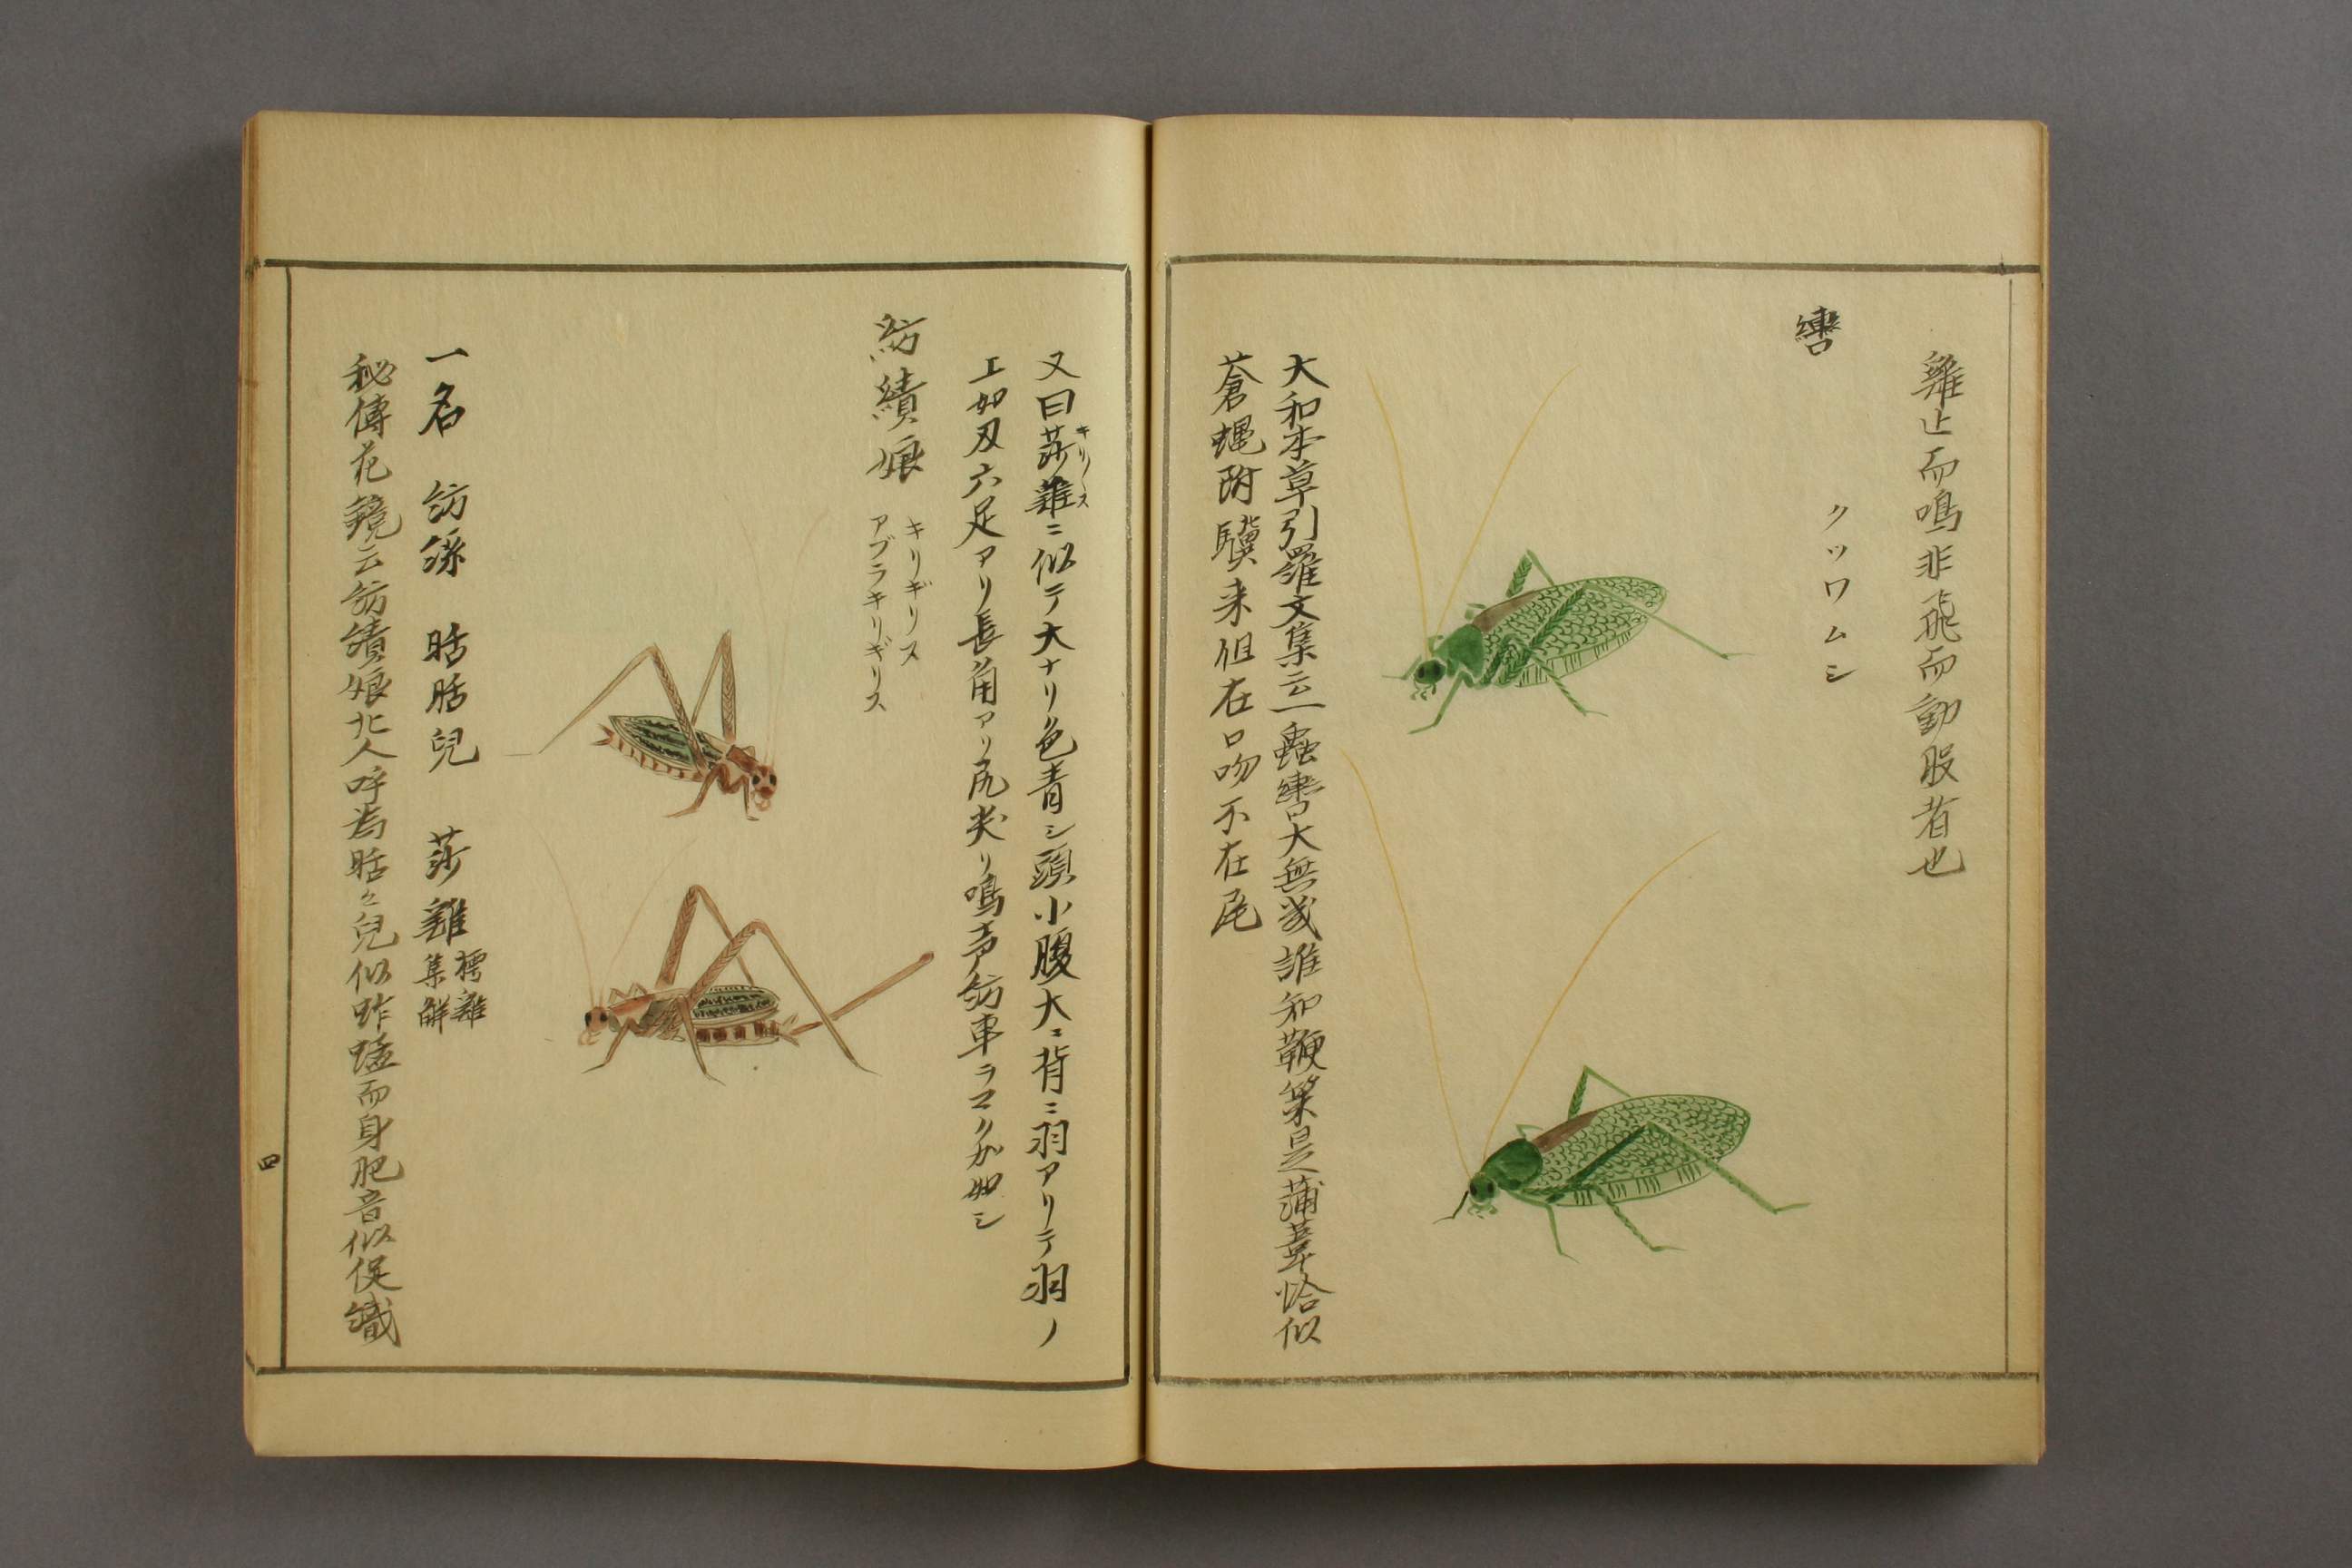 雞止而鳴非飛而動股者也
轡 クツワムシ
大和本草引羅文集云一蟲轡大無幾誰知鞭策是蒲葦恰似
蒼蠅附驥来但在口吻不在尾
又曰莎雞ニ似テ大ナリ色青シ頭小腹大ニ背ニ羽アリテ羽ノ
キリ〳〵ス
上如刄六足アリ長角アリ尻尖リ鳴声紡車ヲマクガ如シ
紡績娘 キリギリス
アブラキリギリス
一名 紡線 聒聒兒 莎雞 樗雞
集解
秘傳花鏡云紡績娘北人呼為聒々兒似蚱蜢而身肥音似促織
四